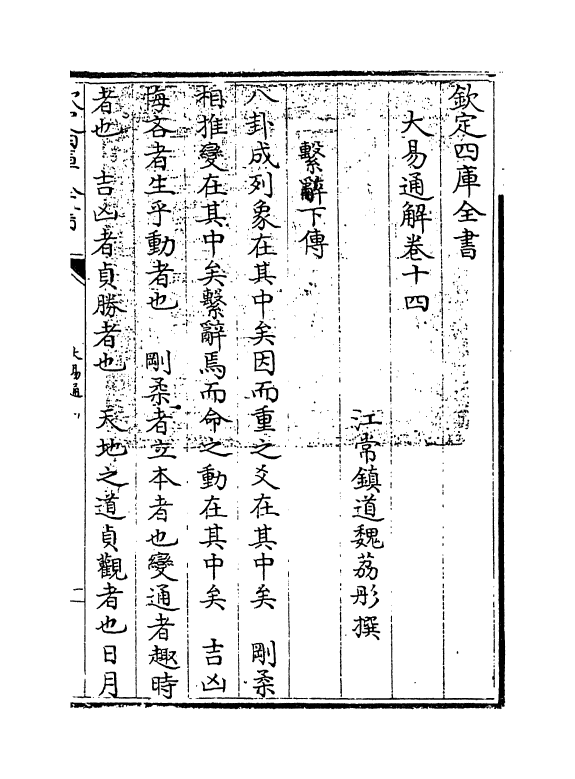 欽定四庫全書
大易通解卷十四
江常鎮道魏荔彤撰
繫辭下傳
八卦成列象在其中矣因而重之爻在其中矣　剛柔
相推變在其中矣繫辭焉而命之動在其中矣　吉凶
悔吝者生乎動者也　剛柔者立本者也變通者趣時
者也　吉凶者貞勝者也　天地之道貞觀者也日月
大易通